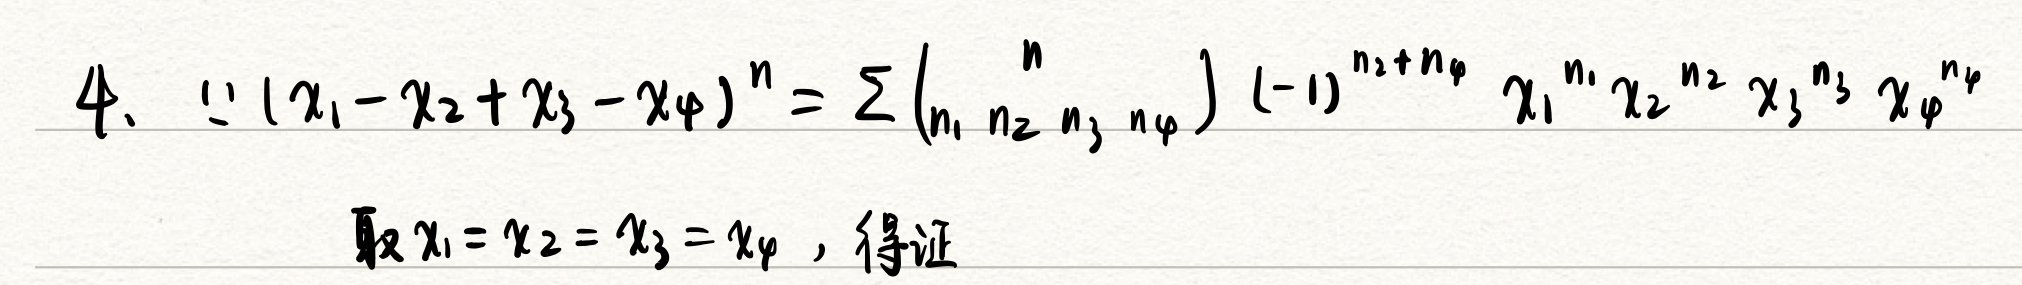 4、∵ (x₁ - x₂ + x₃ - x₄)ⁿ = Σ (n / n₁ n₂ n₃ n₄) (-1)^(n₂+n₄) x₁^n₁ x₂^n₂ x₃^n₃ x₄^n₄
取 x₁ = x₂ = x₃ = x₄ , 得证